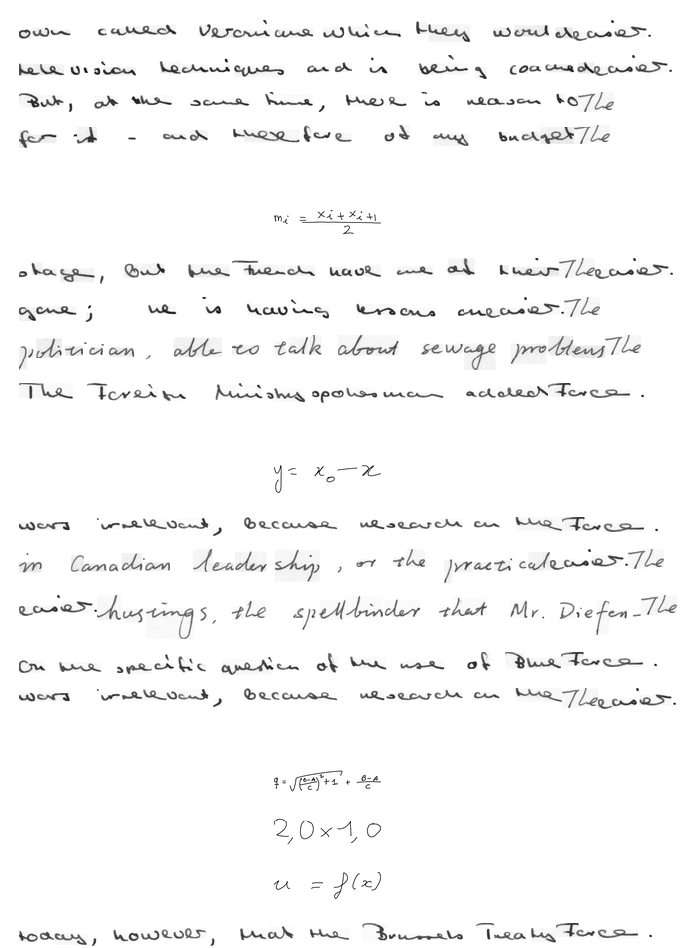 own called Veronicane which they would easier.
television techniques and is being coached easier.
But, at the same time, there is reason to The
for it - and therefore of any budget The
m_i = \frac{x_i + x_{i+1}}{2}
stage, but the French have one of their The easier.
game; he is having lessons on easier. The
politician, able to talk about sewage problems The
The Foreign Ministry spokesman added Force.
y = x_0 - x
was irrelevant, because research on the Force.
in Canadian leadership, or the practical easier. The
easier. hustings, the spellbinder that Mr. Diefen- The
On the specific question of the use of Blue Force.
was irrelevant, because research on the The easier.
q = \sqrt{(\frac{B-A}{C})^2 + 1} + \frac{B-A}{C}
2,0 × 1,0
u = f(x)
today, however, that the Brussels Treaty Force.